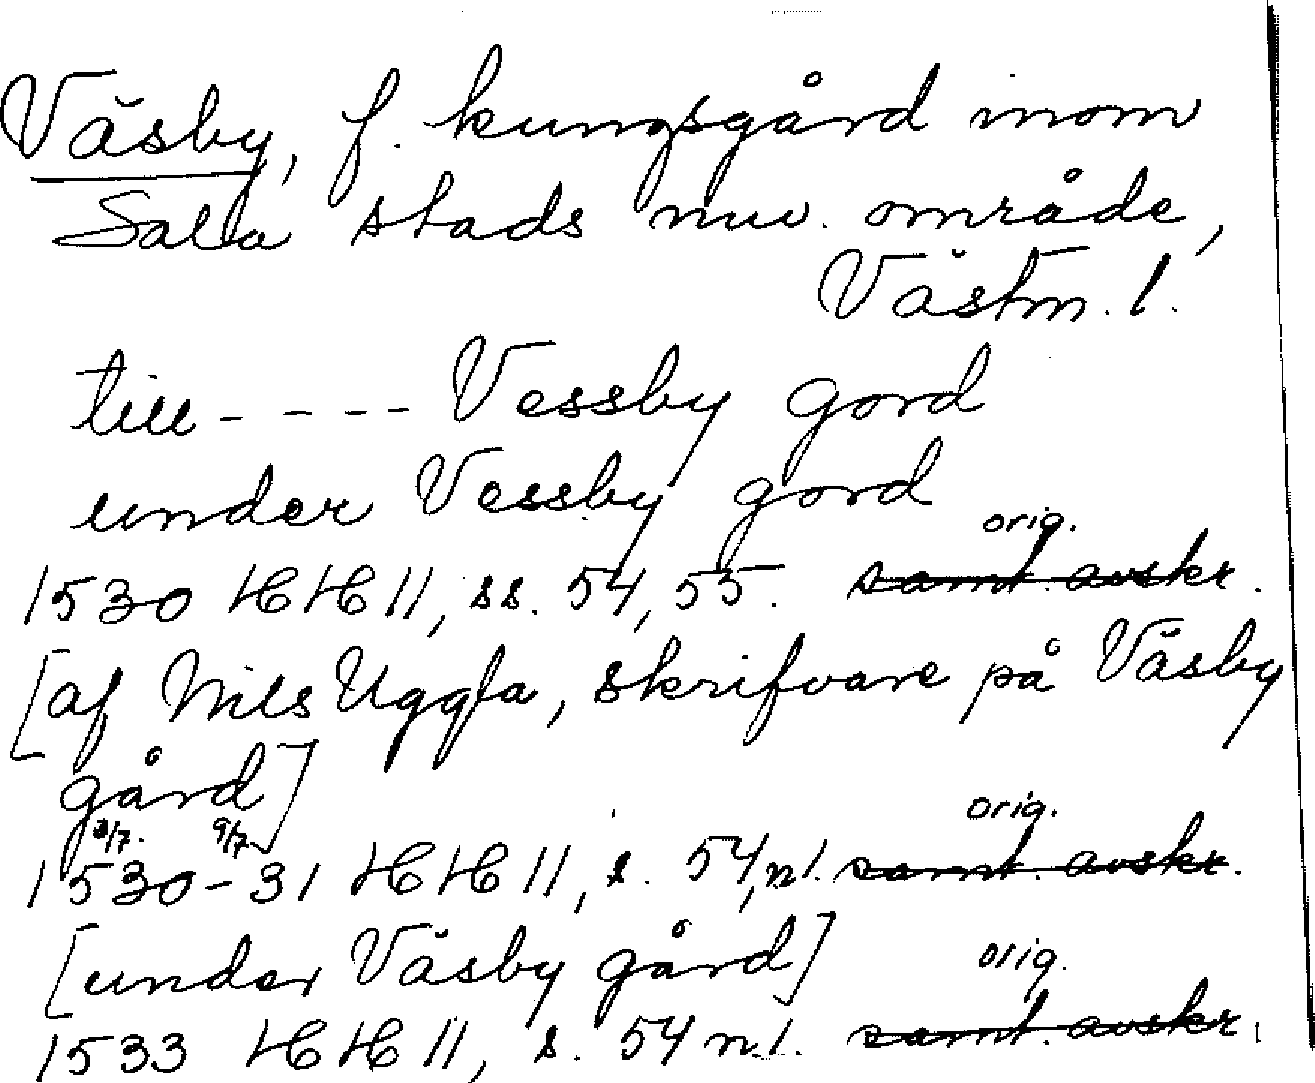 Väsby, f. kungsgård inom
Sala stads nuv. område,
Västm. l.
till - - - - Vessby gord
under Vessby gord
orig.
1530 HH 11, ss. 54, 55. samt. avskr.
[af Nils Uggla, skrifvare på Väsby
gård]
3/7. 9/7
1530-31 HH 11, s. 54, n1. samt. avskr.
orig.
[under Väsby gård]
orig.
1533 HH 11, s. 54 n.1. samt. avskr.